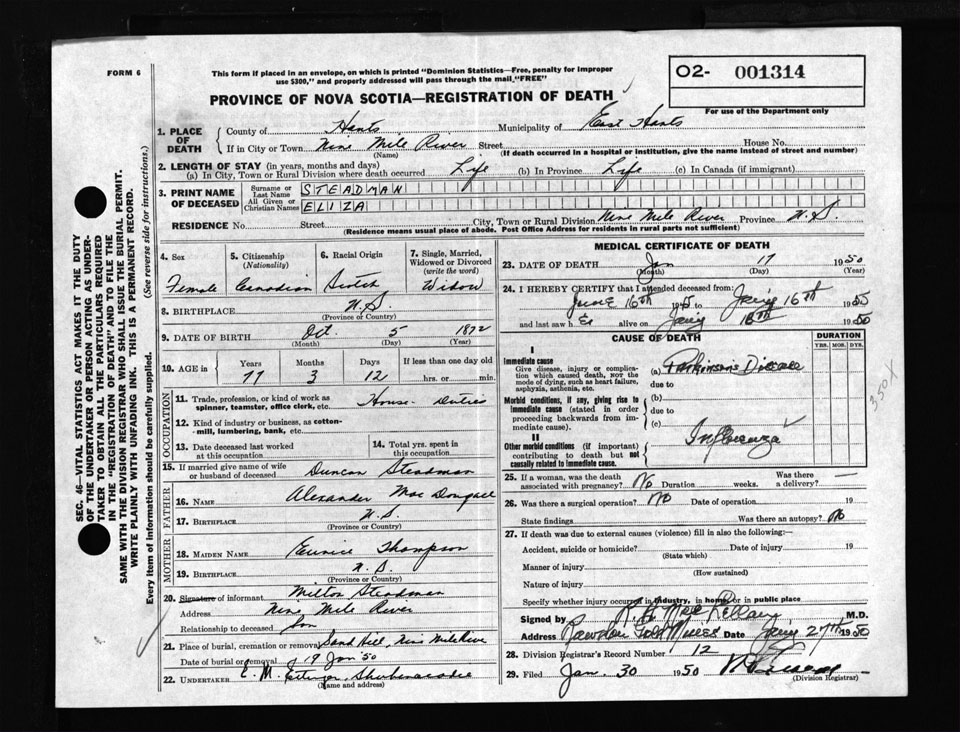 FORM 6
This form if placed in an envelope, on which is printed "Dominion Statistics—Free, penalty for improper
use $300," and properly addressed will pass through the mail, "FREE"
O2- 001314
For use of the Department only
PROVINCE OF NOVA SCOTIA—REGISTRATION OF DEATH
1. PLACE OF DEATH
County of Hants Municipality of East Hants
If in City or Town Nine Mile River Street House No.
(Name) (If death occurred in a hospital or institution, give the name instead of street and number)
2. LENGTH OF STAY (in years, months and days)
(a) In City, Town or Rural Division where death occurred Life (b) In Province Life (c) In Canada (if immigrant)
3. PRINT NAME OF DECEASED
Surname or Last Name STEADMAN
All Given or Christian Names ELIZA
RESIDENCE No. Street City, Town or Rural Division Nine Mile River Province N.S.
(Residence means usual place of abode. Post Office Address for residents in rural parts not sufficient)
4. Sex 5. Citizenship (Nationality) 6. Racial Origin 7. Single, Married, Widowed or Divorced (write the word)
Female Canadian Scotch Widow
8. BIRTHPLACE N.S.
(Province or Country)
9. DATE OF BIRTH Oct 5 1872
(Month) (Day) (Year)
10. AGE in Years Months Days If less than one day old
77 3 12 hrs. or min.
OCCUPATION
11. Trade, profession, or kind of work as House Duties
spinner, teamster, office clerk, etc.
12. Kind of industry or business, as cotton-
mill, lumbering, bank, etc.
13. Date deceased last worked at this occupation
14. Total yrs. spent in this occupation
15. If married give name of wife or husband of deceased Duncan Steadman
FATHER
16. NAME Alexander Mac Dougall
17. BIRTHPLACE N.S.
(Province or Country)
MOTHER
18. MAIDEN NAME Eunice Thompson
19. BIRTHPLACE N.S.
(Province or Country)
20. Signature of informant Milton Steadman
Address Nine Mile River
Relationship to deceased Son
21. Place of burial, cremation or removal Sand Hill, Nine Mile River
Date of burial or removal 19 Jan 50
22. UNDERTAKER E. M. Shubenacadie
(Name and address)
MEDICAL CERTIFICATE OF DEATH
23. DATE OF DEATH Jan 17 1950
(Month) (Day) (Year)
24. I HEREBY CERTIFY that I attended deceased from:
16th to 16th
and last saw h er alive on 16th 1950
CAUSE OF DEATH
DURATION
YRS. MOS. DYS.
I
Immediate cause
Give disease, injury or complication which caused death, NOT the mode of dying, such as heart failure, asphyxia, asthenia, etc.
(a) Parkinson's Disease
due to
Morbid conditions, if any, giving rise to immediate cause (stated in order proceeding backwards from immediate cause).
(b)
due to
(c)
II
Other morbid conditions (if important) contributing to death but not causally related to immediate cause.
Influenza
350X
25. If a woman, was the death associated with pregnancy? No Duration weeks. Was there a delivery?
26. Was there a surgical operation? No Date of operation 19
State findings Was there an autopsy? No
27. If death was due to external causes (violence) fill in also the following:—
Accident, suicide or homicide? Date of injury 19
(State which)
Manner of injury
(How sustained)
Nature of injury
Specify whether injury occurred in industry, in home or in public place
Signed by M.D.
Address Rawdon Gold Mines Date 27th 1950
28. Division Registrar's Record Number 12
29. Filed Jan. 30 1950
(Division Registrar)
SEC. 46—VITAL STATISTICS ACT MAKES IT THE DUTY
OF THE UNDERTAKER OR PERSON ACTING AS UNDER-
TAKER TO OBTAIN ALL THE PARTICULARS REQUIRED
IN THE "REGISTRATION OF DEATH" AND TO FILE THE
SAME WITH THE DIVISION REGISTRAR WHO SHALL ISSUE THE BURIAL PERMIT.
WRITE PLAINLY WITH UNFADING INK. THIS IS A PERMANENT RECORD.
Every item of information should be carefully supplied. (See reverse side for instructions.)